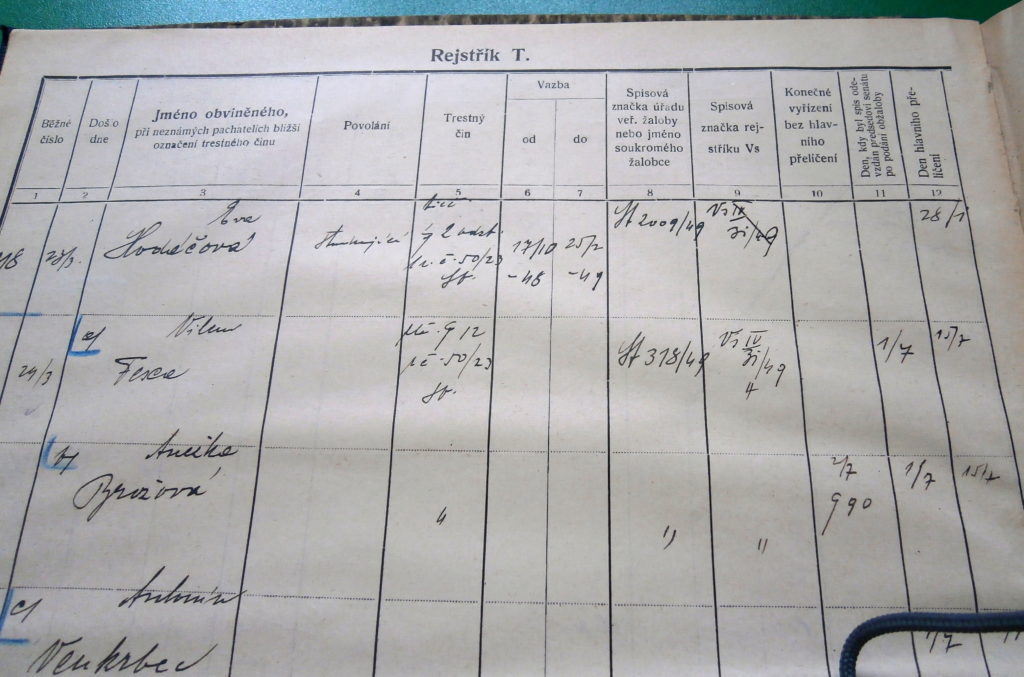 Rejstřík T.
Běžné
číslo
Došlo
dne
Jméno obviněného,
při neznámých pachatelích bližší
označení trestného činu
Povolání
Trestný
čin
Vazba
od
do
Spisová
značka úřadu
veř. žaloby
nebo jméno
soukromého
žalobce
Spisová
značka rej-
stříku Vs
Konečné
vyřízení
bez hlav-
ního
přelíčení
Den, kdy byl spis ode-
vzdán předsedovi senátu
po podání obžaloby
Den hlavního pře-
líčení
1 2 3 4 5 6 7 8 9 10 11 12
Eva
Hodáčová
23/3.
§ 2 odst.
č. 50/23
Sb.
17/10
-48
25/2
-49
St 2009/49
Vs IV
31/49
28/1
24/3
a/
Vilem
Fexa
§ 12
č. 50/23
Sb.
St 318/49
Vs IV
31/49
4
1/7
15/7
b/
Anežka
Brožová
"
"
"
2/7
§ 90
1/7
15/7
c/
Antonín
Venkrbec
1/7